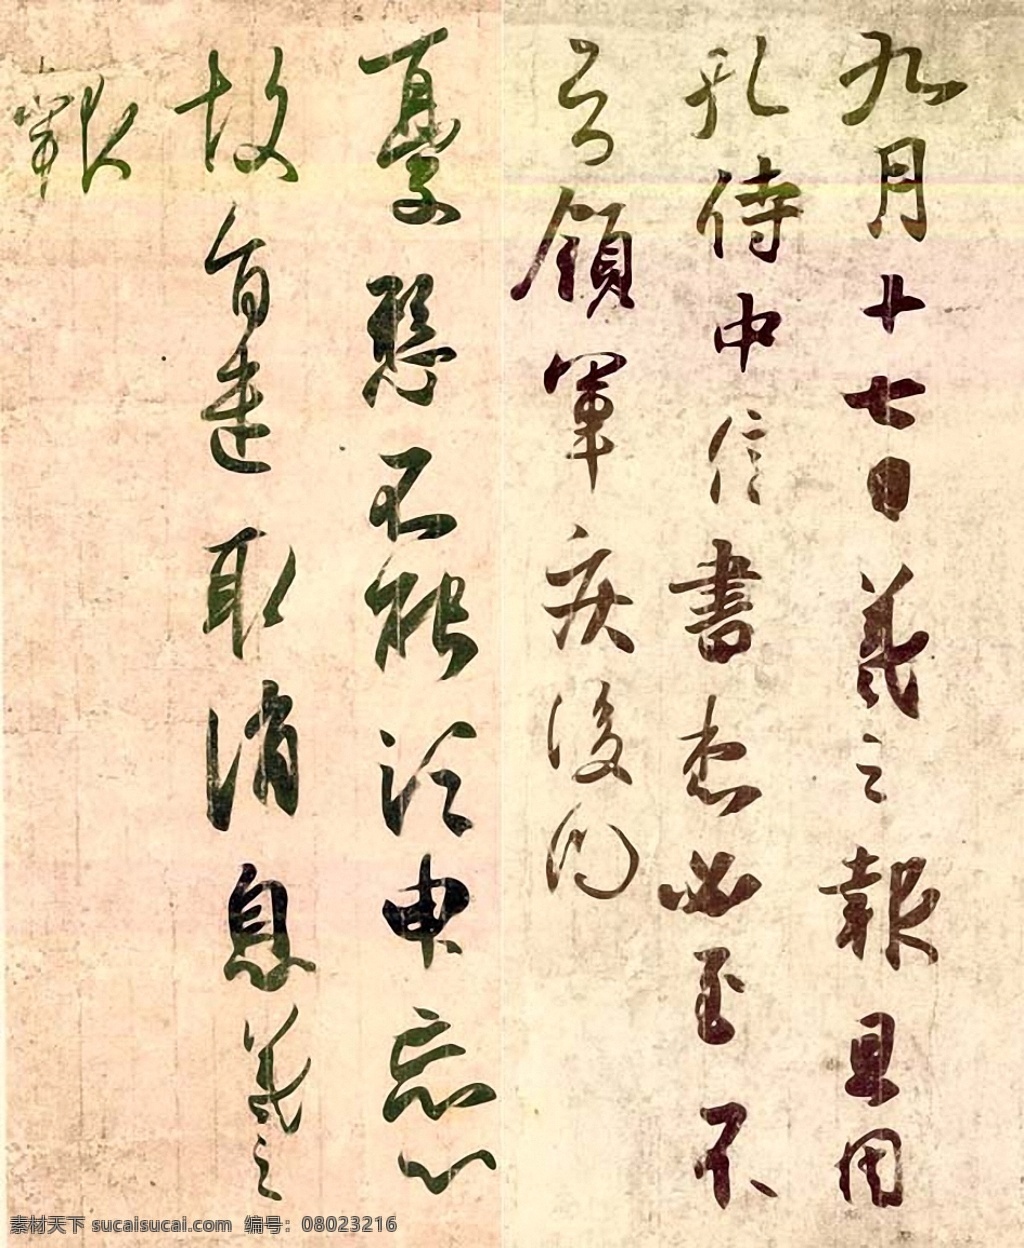 九月十七日羲之報且因
孔侍中信書想必至不
知領軍疾後問
憂懸不能須臾忘心
故旨遣取消息羲之
報
素材天下 sucaisucai.com 编号：08023216